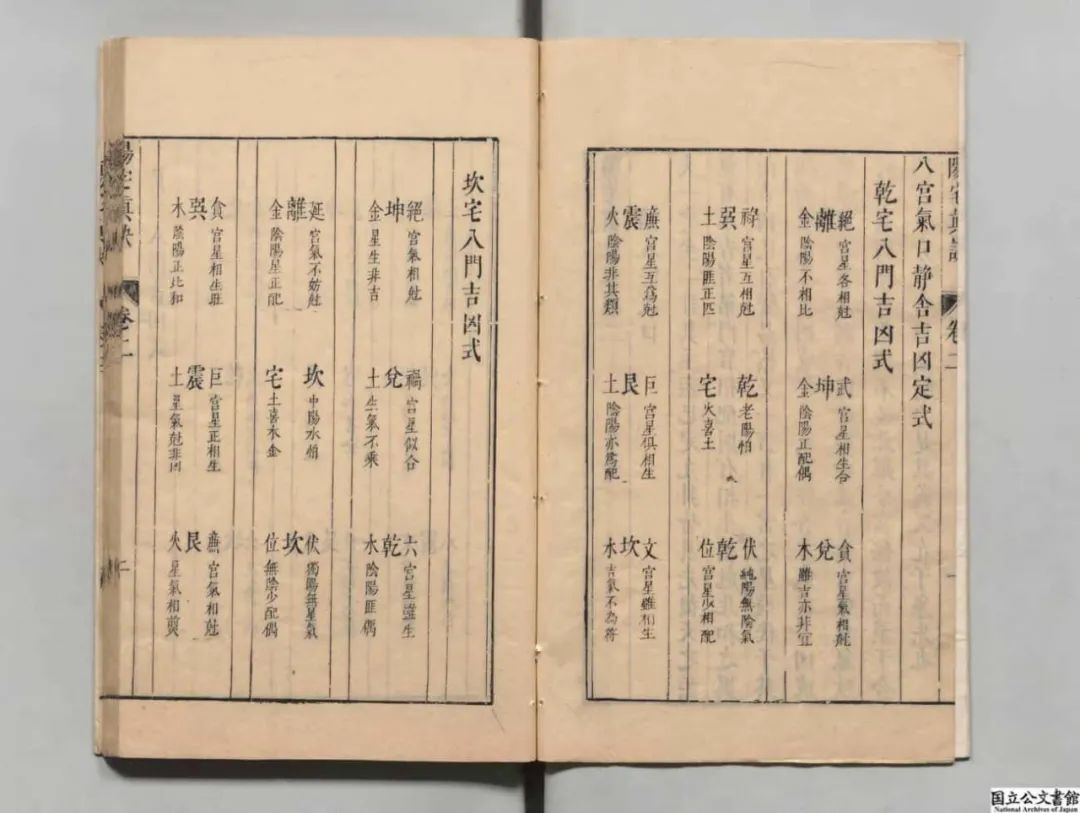 卷二
八宮氣口靜舍吉凶定式
乾宅八門吉凶式
絕離金
宮星各相尅
陰陽不相比
武坤金
宮星相生合
陰陽正配偶
貪兌木
宮星氣相尅
雖吉亦非宜
禄巽土
宮星互相尅
陰陽匪正匹
乾宅
老陽怕
火喜土
伏乾位
純陽無陰氣
宮星少相配
廉震火
宮星互爲尅
陰陽非其類
巨艮土
宮星俱相生
陰陽亦爲配
文坎水
宮星雖相生
吉氣不為符
坎宅八門吉凶式
絕坤金
宮氣相尅
星生非吉
禍兌土
宮星似合
生氣不乘
六乾水
宮星雖生
陰陽匪偶
延離金
宮氣不妨尅
陰陽星正配
坎宅
中陽水怕
土喜木金
伏坎位
獨陽無星氣
無陰少配偶
貪巽木
宮星相生旺
陰陽正比和
巨震土
宮星正相生
星氣尅非凶
廉艮火
宮氣相尅
星氣相煎
陽宅真訣
卷二
二
国立公文書館
National Archives of Japan